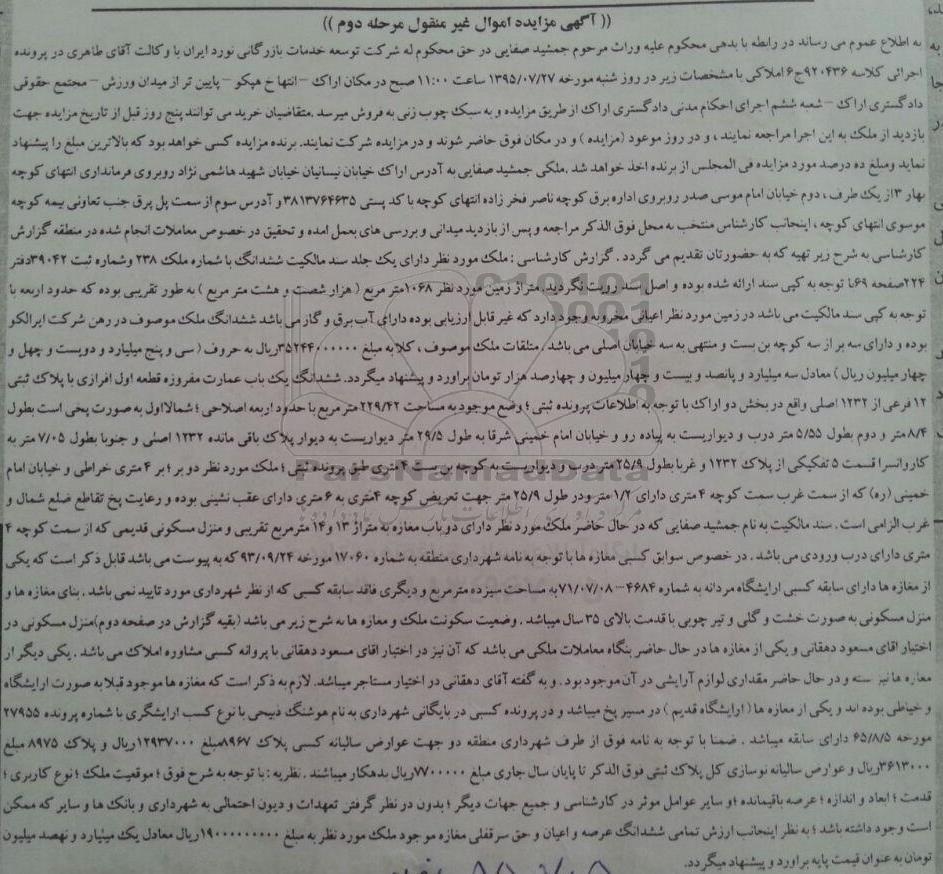 (( آگهی مزایده اموال غیر منقول مرحله دوم ))
به اطلاع عموم می رساند در رابطه با بدهی محکوم علیه وراث مرحوم جمشید صفایی در حق محکوم له شرکت توسعه خدمات بازرگانی نورد ایران با وکالت آقای طاهری در پرونده
اجرائی کلاسه ۹۲۰۴۳۶ج۶ املاکی با مشخصات زیر در روز شنبه مورخه ۱۳۹۵/۰۷/۲۷ ساعت ۱۱:۰۰ صبح در مکان اراک – انتهاخ هپکو – پایین تر از میدان ورزش – مجتمع حقوقی
دادگستری اراک – شعبه ششم اجرای احکام مدنی دادگستری اراک از طریق مزایده و به سبک چوب زنی به فروش میرسد .متقاضیان خرید می توانند پنج روز قبل از تاریخ مزایده جهت
بازدید از ملک به این اجرا مراجعه نمایند ، و در روز موعود (مزایده ) و در مکان فوق حاضر شوند و در مزایده شرکت نمایند. برنده مزایده کسی خواهد بود که بالاترین مبلغ را پیشنهاد
نماید ومبلغ ده درصد مورد مزایده فی المجلس از برنده اخذ خواهد شد .ملکی جمشید صفایی به آدرس اراک خیابان نیسانیان خیابان شهید هاشمی نژاد روبروی فرمانداری انتهای کوچه
بهار ۳از یک طرف ، دوم خیابان امام موسی صدر روبروی اداره برق کوچه ناصر فخر زاده انتهای کوچه با کد پستی ۳۸۱۳۷۶۴۶۳۵ و آدرس سوم از سمت پل برق جنب تعاونی بیمه کوچه
موسوی انتهای کوچه ، اینجانب کارشناس منتخب به محل فوق الذکر مراجعه و پس از بازدید میدانی و بررسی های بعمل امده و تحقیق در خصوص معاملات انجام شده در منطقه گزارش
کارشناسی به شرح زیر تهیه که به حضورتان تقدیم می گردد . گزارش کارشناسی : ملک مورد نظر دارای یک جلد سند مالکیت ششدانگ با شماره ملک ۲۳۸ وشماره ثبت ۳۹۰۴۲دفتر
۲۲۴صفحه ۶۹با توجه به کپی سند ارائه شده بوده و اصل سند رویت نگردید. متراژ زمین مورد نظر ۱۰۶۸متر مربع ( هزار شصت و هشت متر مربع ) به طور تقریبی بوده که حدود اربعه با
توجه به کپی سند مالکیت می باشد در زمین مورد نظر اعیانی مخروبه وجود دارد که غیر قابل ارزیابی بوده دارای آب برق و گاز می باشد ششدانگ ملک موصوف در رهن شرکت ایرالکو
بوده و دارای سه بر از سه کوچه بن بست و منتهی به سه خیابان اصلی می باشد . متلقات ملک موصوف ، کلا به مبلغ ۳۵۲۴۴۰۰۰۰۰۰ریال به حروف ( سی و پنج میلیارد و دویست و چهل و
چهار میلیون ریال ) معادل سه میلیارد و پانصد و بیست و چهار میلیون و چهارصد هزار تومان براورد و پیشنهاد میگردد. ششدانگ یک باب عمارت مفروزه قطعه اول افرازی با پلاک ثبتی
۱۲ فرعی از ۱۲۳۲ اصلی واقع در بخش دو اراک با توجه به اطلاعات پرونده ثبتی ؛ وضع موجود به مساحت ۲۲۹/۴۲ متر مربع با حدود اربعه اصلاحی ؛ شمالااول به صورت پخی است بطول
۸/۴ متر و دوم بطول ۵/۵۵ متر درب و دیواریست به پیاده رو و خیابان امام خمینی شرقا به طول ۲۹/۵ متر دیواریست به دیوار پلاک باقی مانده ۱۲۳۲ اصلی و جنوبا بطول ۷/۰۵ متر به
کاروانسرا قسمت ۵ تفکیکی از پلاک ۱۲۳۲ و غربا بطول ۲۵/۹ متر درب و دیواریست به کوچه بن بست ۴ متری طبق پرونده ثبتی ؛ ملک مورد نظر دو بر ؛ بر ۴ متری خراطی و خیابان امام
خمینی (ره) که از سمت غرب سمت کوچه ۴ متری دارای ۱/۲ متر ودر طول ۲۵/۹ متر جهت تعریض کوچه ۴متری به ۶ متری دارای عقب نشینی بوده و رعایت پخ تقاطع ضلع شمال و
غرب الزامی است . سند مالکیت به نام جمشید صفایی که در حال حاضر ملک مورد نظر دارای دو باب مغازه به متراژ ۱۳ و ۱۴ متر مربع تقریبی و منزل مسکونی قدیمی که از سمت کوچه ۴
متری دارای درب ورودی می باشد . در خصوص سوابق کسبی مغازه ها با توجه به نامه شهرداری منطقه به شماره ۱۷۰۶۰ مورخه ۹۳/۰۹/۲۴ که به پیوست می باشد قابل ذکر است که یکی
از مغازه ها دارای سابقه کسبی ارایشگاه مردانه به شماره ۴۶۸۴–۷۱/۰۷/۰۸ به مساحت سیزده متر مربع و دیگری فاقد سابقه کسبی که از نظر شهرداری مورد تایید نمی باشد . بنای مغازه ها و
منزل مسکونی به صورت خشت و گلی و تیر چوبی با قدمت بالای ۳۵ سال میباشد . وضعیت سکونت ملک و مغازه ها به شرح زیر می باشد (بقیه گزارش در صفحه دوم)منزل مسکونی در
اختیار اقای مسعود دهقانی و یکی از مغازه ها در حال حاضر بنگاه معاملات ملکی می باشد که آن نیز در اختیار اقای مسعود دهقانی با پروانه کسبی مشاوره املاک می باشد . یکی دیگر از
مغازه ها نیز بسته و در حال حاضر مقداری لوازم آرایشی در آن موجود بود . و به گفته آقای دهقانی در اختیار مستاجر میباشد. لازم به ذکر است که مغازه ها موجود قبلا به صورت ارایشگاه
و خیاطی بوده اند و یکی از مغازه ها ( ارایشگاه قدیم ) در مسیر پخ میباشد و در پرونده کسبی در بایگانی شهرداری به نام هوشنگ ذبیحی با نوع کسب ارایشگری با شماره پرونده ۲۷۹۵۵
مورخه ۶۵/۸/۵ دارای سابقه میباشد . ضمنا با توجه به نامه فوق از طرف شهرداری منطقه دو جهت عوارض سالیانه کسبی پلاک ۸۹۶۷مبلغ ۱۲۹۳۷۰۰۰ریال و پلاک ۸۹۷۵ مبلغ
۳۶۱۳۰۰۰ریال و عوارض سالیانه نوسازی کل پلاک ثبتی فوق الذکر تا پایان سال جاری مبلغ ۷۷۰۰۰۰۰ریال بدهکار میباشند . نظریه : با توجه به شرح فوق ؛ موقعیت ملک ؛ نوع کاربری ؛
قدمت ؛ ابعاد و اندازه ؛ عرصه باقیمانده ؛و سایر عوامل موثر در کارشناسی و جمیع جهات دیگر ؛ بدون در نظر گرفتن تعهدات و دیون احتمالی به شهرداری و بانک ها و سایر که ممکن
است وجود داشته باشد ؛ به نظر اینجانب ارزش تمامی ششدانگ عرصه و اعیان و حق سرقفلی مغازه موجود ملک مورد نظر به مبلغ ۱۹۰۰۰۰۰۰۰۰۰ریال معادل یک میلیارد و نهصد میلیون
تومان به عنوان قیمت پایه براورد و پیشنهاد میگردد.
ParsNamadData